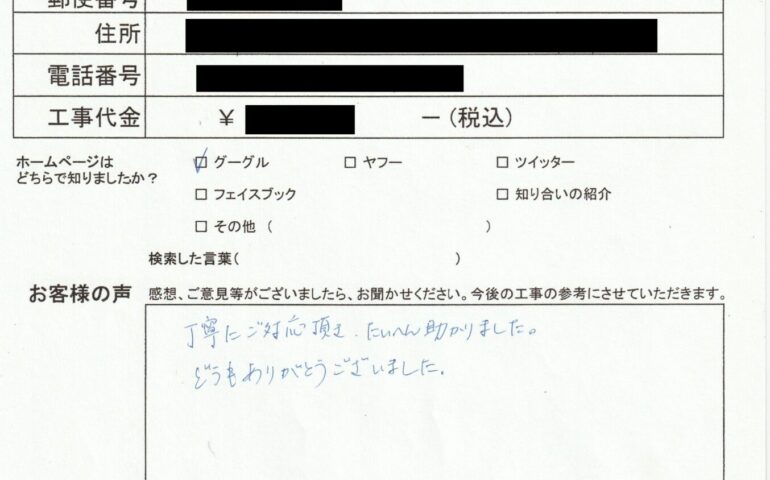 郵便番号
住所
電話番号
工事代金 ¥ ー(税込)
ホームページは
どちらで知りましたか？
□ グーグル □ ヤフー □ ツイッター
□ フェイスブック □ 知り合いの紹介
□ その他 ( )
検索した言葉( )
お客様の声 感想、ご意見等がございましたら、お聞かせください。今後の工事の参考にさせていただきます。
丁寧にご対応頂き、たいへん助かりました。
どうもありがとうございました.